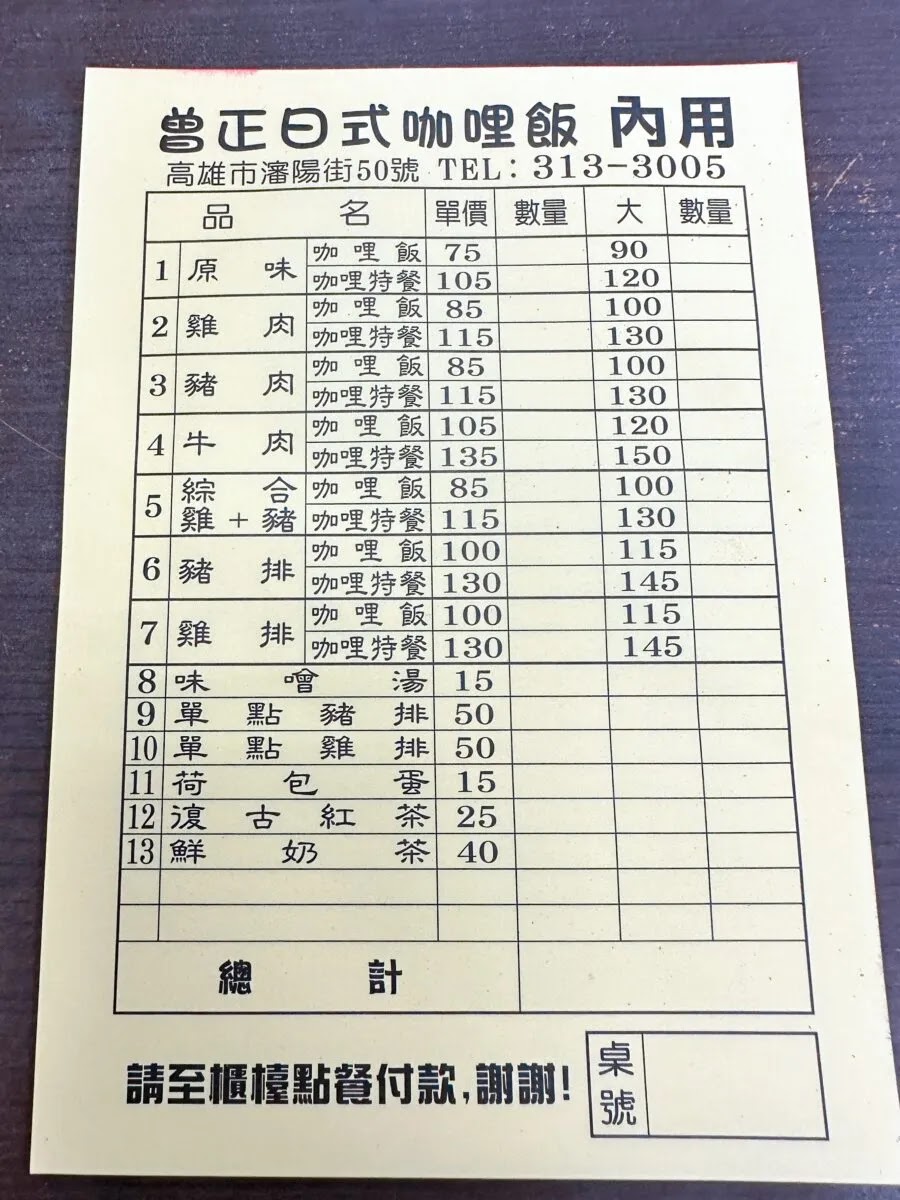 曾正日式咖哩飯 內用
高雄市瀋陽街50號 TEL:313-3005
品名 單價 數量 大 數量
1 原味 咖哩飯 75 90
咖哩特餐 105 120
2 雞肉 咖哩飯 85 100
咖哩特餐 115 130
3 豬肉 咖哩飯 85 100
咖哩特餐 115 130
4 牛肉 咖哩飯 105 120
咖哩特餐 135 150
5 綜合 咖哩飯 85 100
雞+豬 咖哩特餐 115 130
6 豬排 咖哩飯 100 115
咖哩特餐 130 145
7 雞排 咖哩飯 100 115
咖哩特餐 130 145
8 味噌湯 15
9 單點豬排 50
10 單點雞排 50
11 荷包蛋 15
12 復古紅茶 25
13 鮮奶茶 40
總計
請至櫃檯點餐付款,謝謝!
桌號